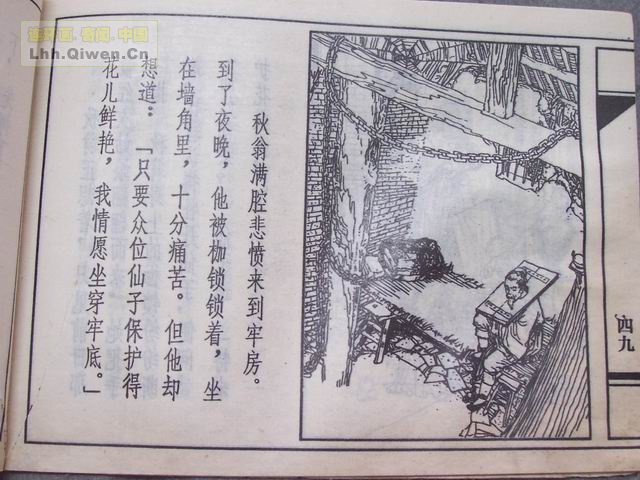 连环画．客问．中国
Lhh.Qiwen.Cn
秋翁满腔悲愤来到牢房。
到了夜晚，他被枷锁锁着，坐
在墙角里，十分痛苦。但他却
想道：“只要众位仙子保护得
花儿鲜艳，我情愿坐穿牢底。”
四九